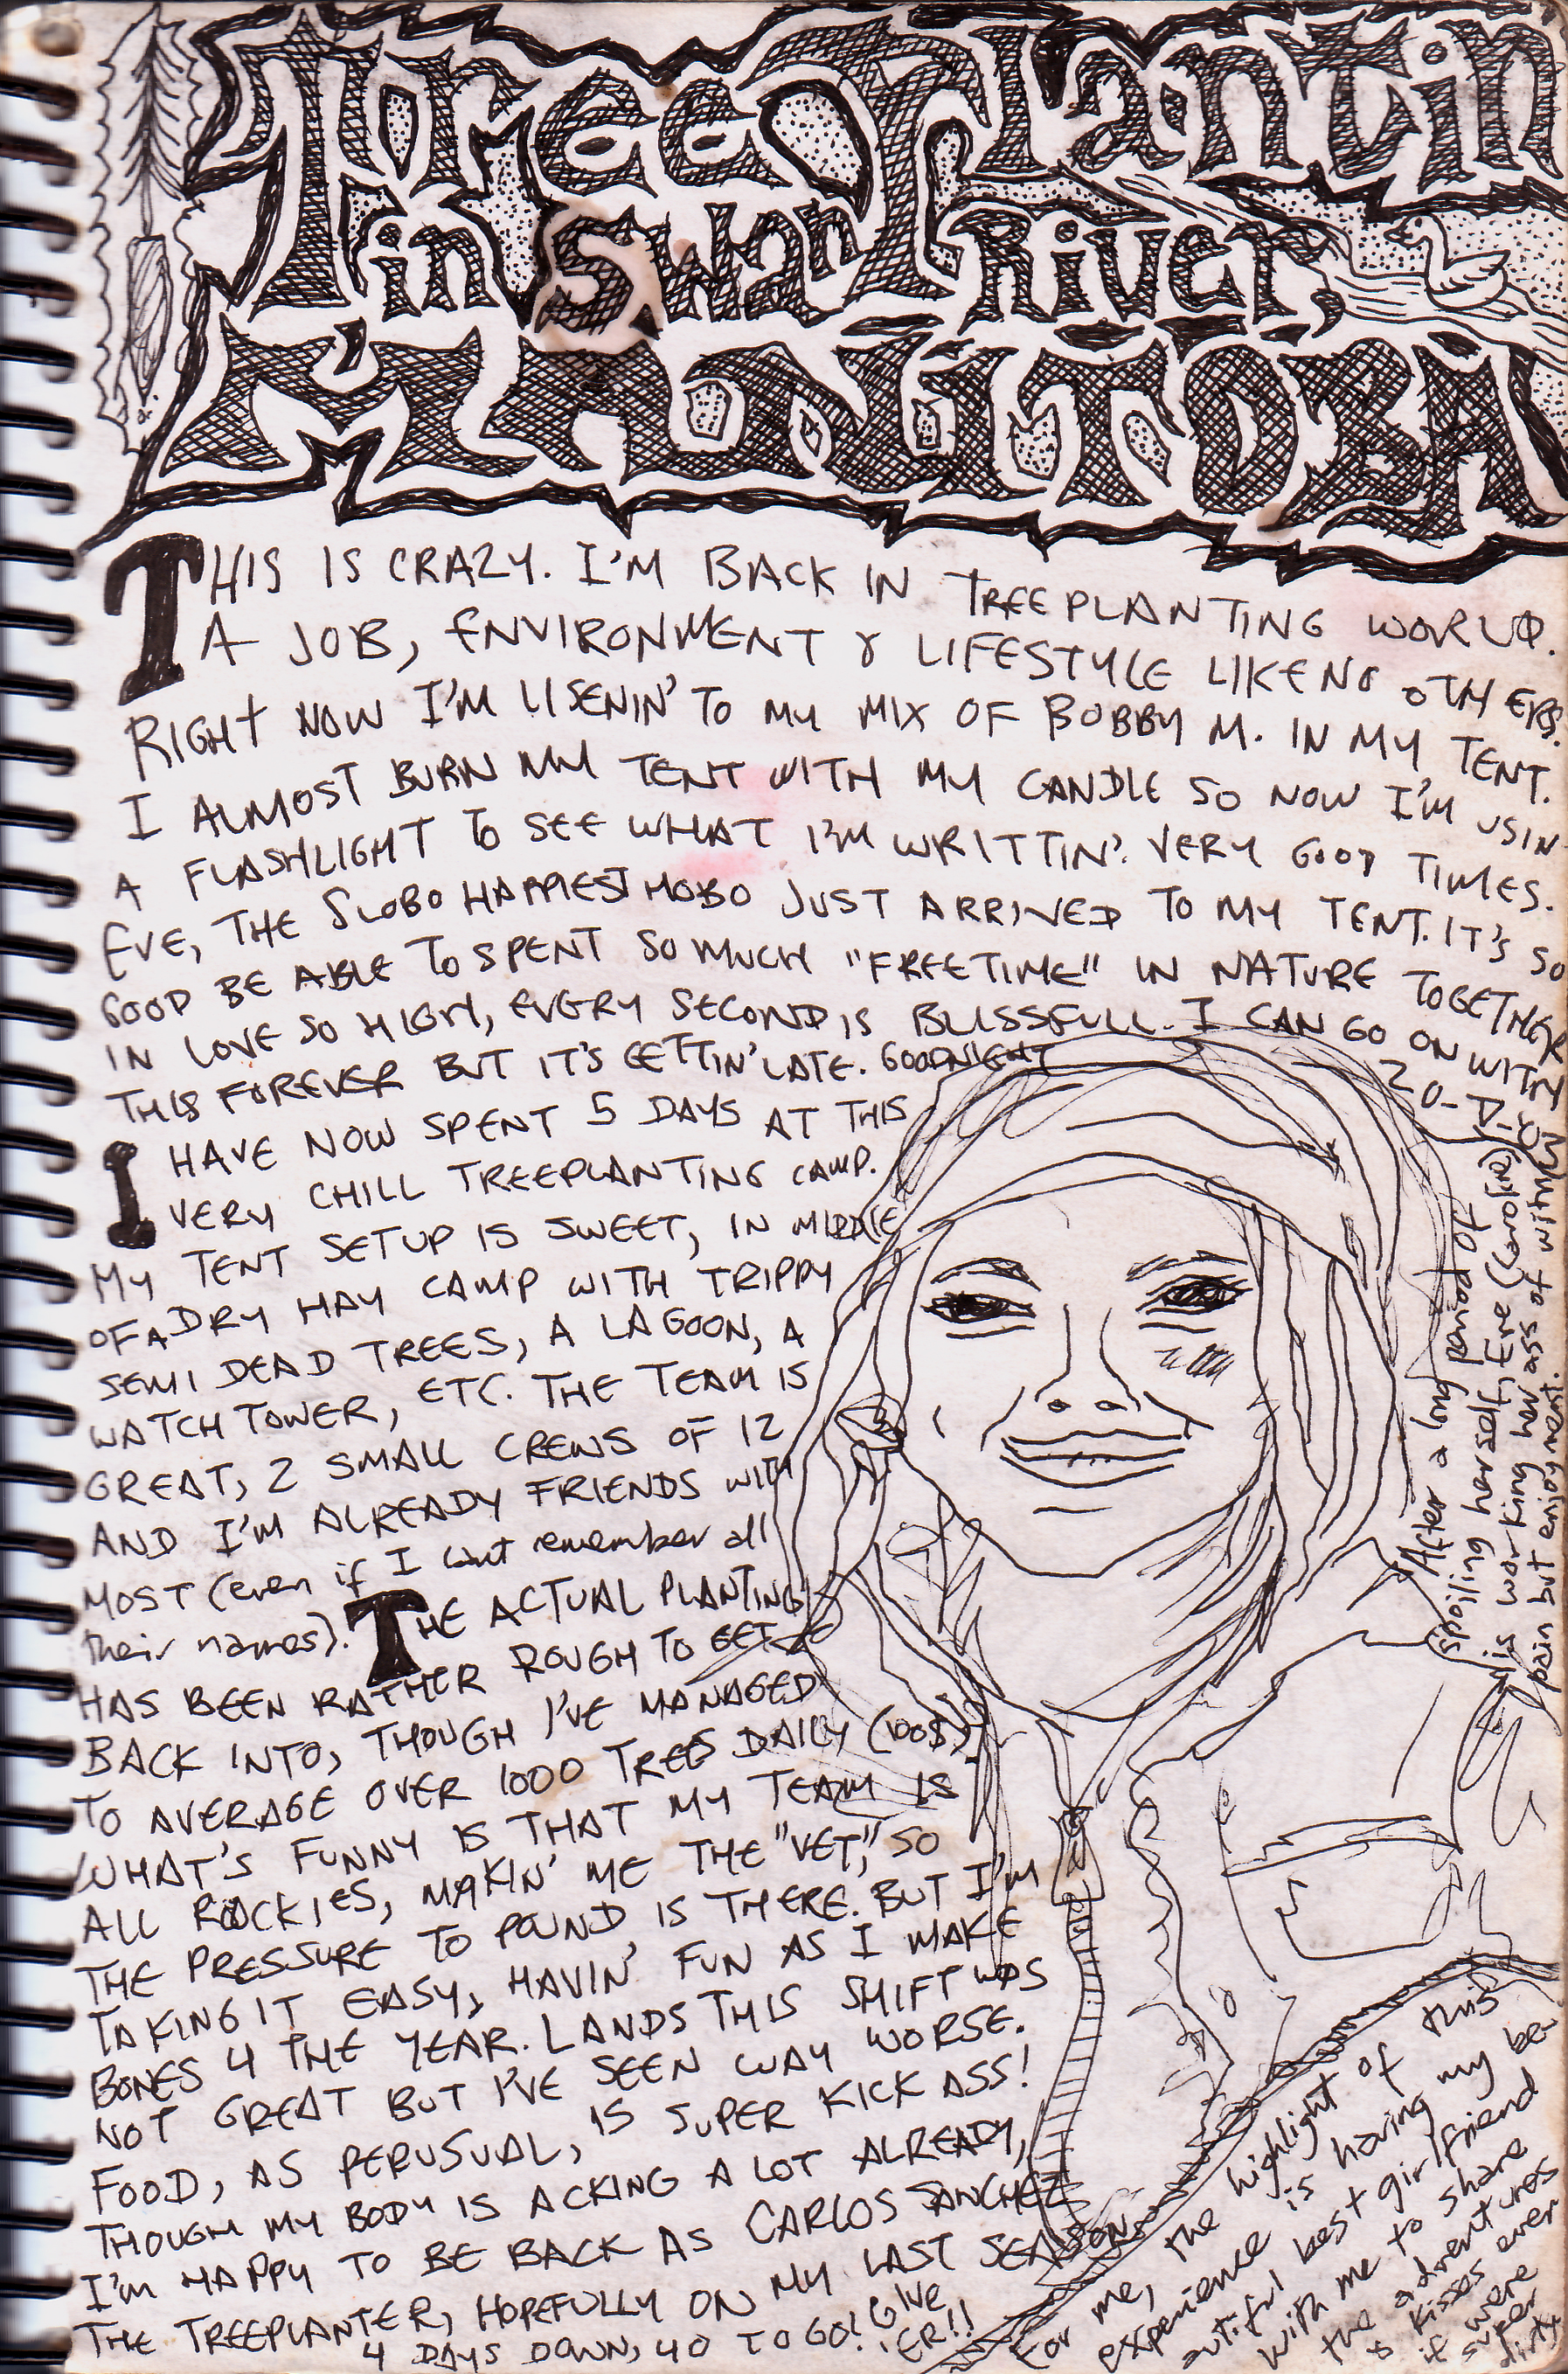 Tree Plantin
in Swan River,
MANITOBA
THIS IS CRAZY. I'M BACK IN TREEPLANTING WORLD.
A JOB, ENVIRONMENT & LIFESTYLE LIKE NO OTHERS.
RIGHT NOW I'M LISENIN' TO MY MIX OF BOBBY M. IN MY TENT.
I ALMOST BURN MY TENT WITH MY CANDLE SO NOW I'M USIN
A FLASHLIGHT TO SEE WHAT I'M WRITTIN'. VERY GOOD TIMES.
EVE, THE SLOBO HAPPIEST HOBO JUST ARRIVED TO MY TENT. IT'S SO
GOOD BE ABLE TO SPENT SO MUCH "FREETIME" IN NATURE TOGETHER
IN LOVE SO HIGH, EVERY SECOND IS BLISSFULL. I CAN GO ON WITH
THIS FOREVER BUT IT'S GETTIN' LATE. GOODNIGHT
20-D-
I HAVE NOW SPENT 5 DAYS AT THIS
VERY CHILL TREEPLANTING CAMP.
MY TENT SETUP IS SWEET, IN MIDDLE
OF A DRY HAY CAMP WITH TRIPPY
SEMI DEAD TREES, A LAGOON, A
WATCH TOWER, ETC. THE TEAM IS
GREAT, 2 SMALL CREWS OF 12
AND I'M ALREADY FRIENDS WITH
MOST (even if I can't remember all
their names). THE ACTUAL PLANTING
HAS BEEN RATHER ROUGH TO GET
BACK INTO, THOUGH I'VE MANAGED
TO AVERAGE OVER 1000 TREES DAILY (100$)
WHAT'S FUNNY IS THAT MY TEAM IS
ALL ROOCKIES, MAKIN' ME THE "VET," SO
THE PRESSURE TO POUND, IS THERE. BUT I'M
TAKING IT EASY, HAVIN' FUN AS I MAKE
BONES 4 THE YEAR. LANDS THIS SHIFT WAS
NOT GREAT BUT I'VE SEEN WAY WORSE.
FOOD, AS PERUSUAL, IS SUPER KICK ASS!
THOUGH MY BODY IS ACKING A LOT ALREADY,
I'M HAPPY TO BE BACK AS CARLOS SANCHEZ
THE TREEPLANTER, HOPEFULLY ON MY LAST SEASON.
4 DAYS DOWN, 40 TO GO! GIVE
'ER!!
After a long period of
spoiling herself, Eve (Karokin)
is working her ass of witn
pain but enjoyment.
For me, the highlight of this
experience is having my be-
autiful best girlfriend
with me to share
the adventures
& kisses even
if were
super
dirty